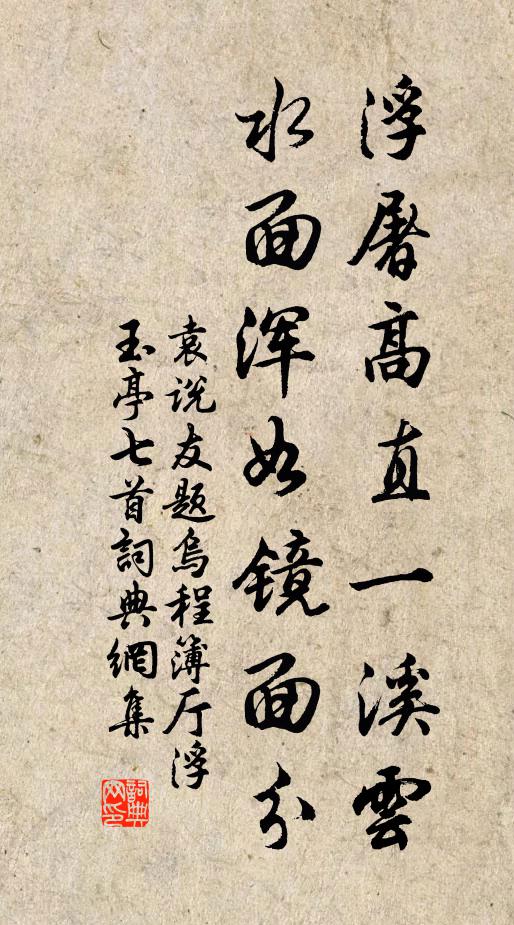 浮屠高直一溪雲
水面浑如镜面分
袁说友题烏程簿厅浮
玉亭七首詞典網集
詞典
网印